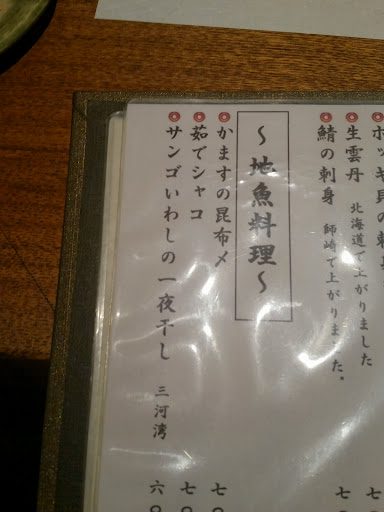 ホッキ貝の刺身
生雲丹 北海道で上がりました
鯖の刺身 師崎で上がりました。
～地魚料理～
かますの昆布〆 七〇
茹でシャコ 七〇
サンゴいわしの一夜干し 三河湾 六〇